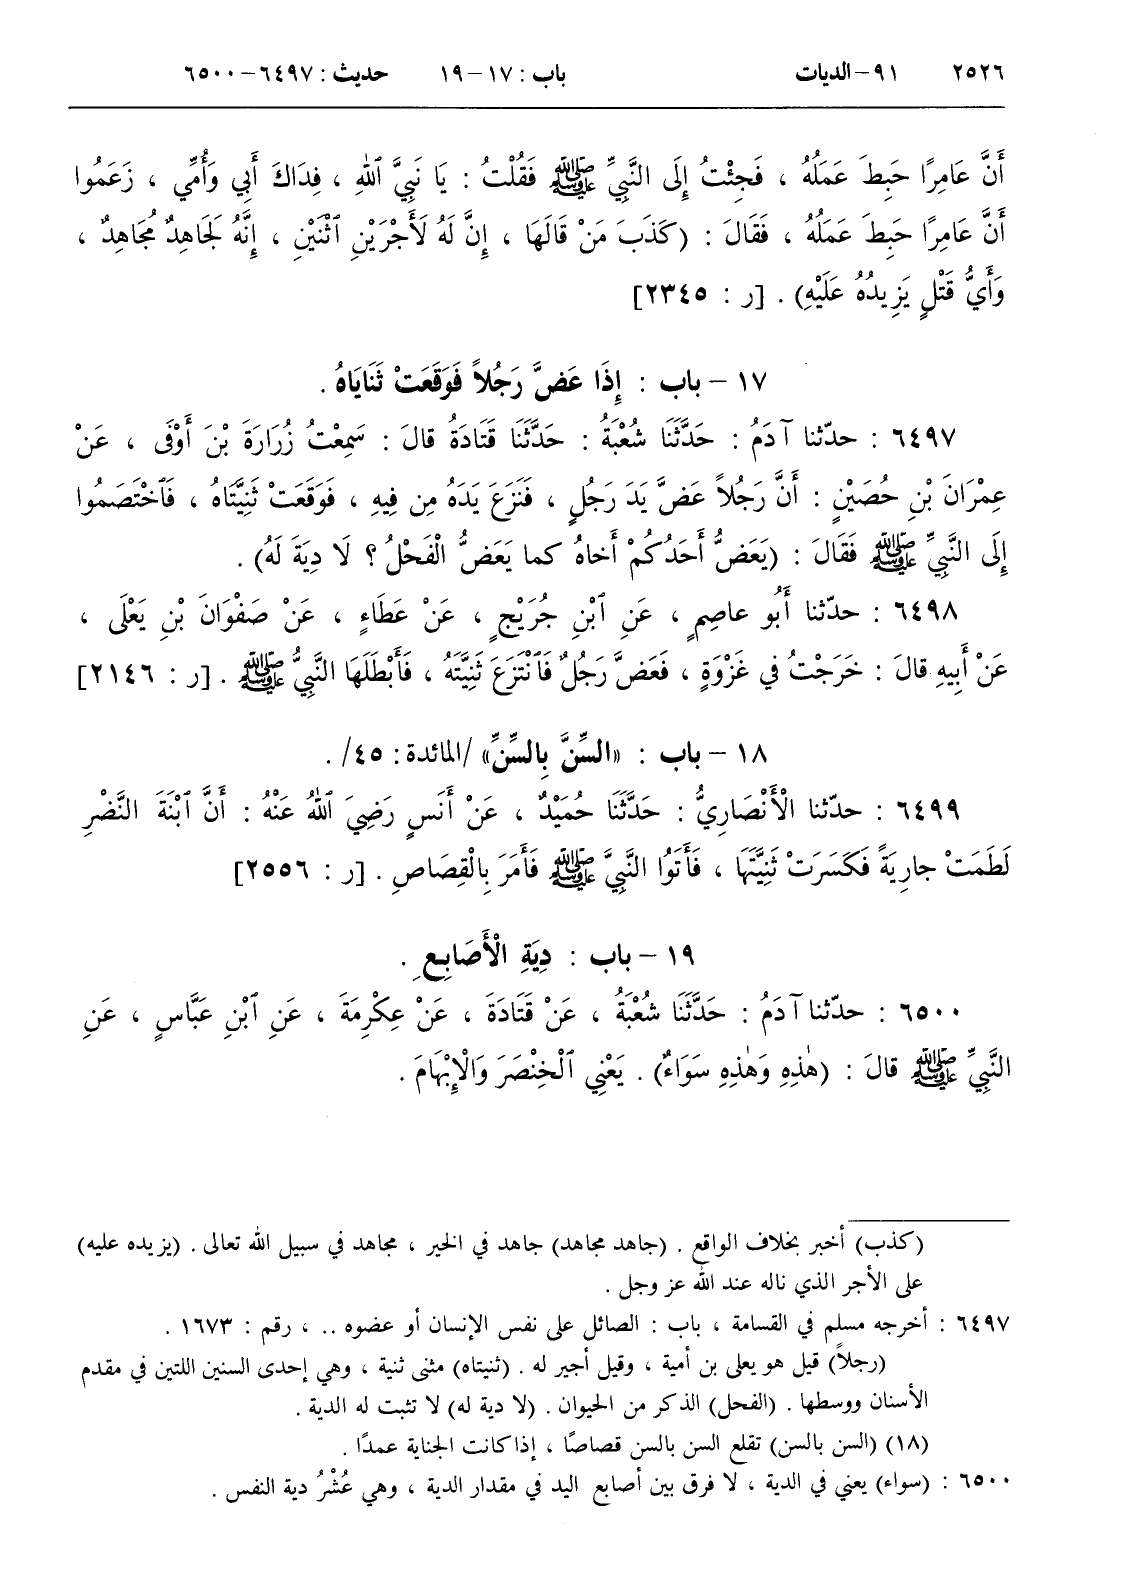 ٢٥٢٦ ٩١-الديات باب : ١٧-١٩ حديث : ٦٤٩٧-٦٥٠٠
أَنَّ عَامِرًا حَبِطَ عَمَلُهُ ، فَجِئْتُ إِلَى النَّبِيِّ ﷺ فَقُلْتُ : يَا نَبِيَّ ٱللهِ ، فِدَاكَ أَبِي وَأُمِّي ، زَعَمُوا
أَنَّ عَامِرًا حَبِطَ عَمَلُهُ ، فَقَالَ : (كَذَبَ مَنْ قَالَهَا ، إِنَّ لَهُ لَأَجْرَيْنِ ٱثْنَيْنِ ، إِنَّهُ لَجَاهِدٌ مُجَاهِدٌ ،
وَأَيُّ قَتْلٍ يَزِيدُهُ عَلَيْهِ) . [ر : ٢٣٤٥]
١٧ – باب : إِذَا عَضَّ رَجُلاً فَوَقَعَتْ ثَنَايَاهُ .
٦٤٩٧ : حدّثنا آدَمُ : حَدَّثَنَا شُعْبَةُ : حَدَّثَنَا قَتَادَةُ قالَ : سَمِعْتُ زُرَارَةَ بْنَ أَوْفَى ، عَنْ
عِمْرَانَ بْنِ حُصَيْنٍ : أَنَّ رَجُلاً عَضَّ يَدَ رَجُلٍ ، فَنَزَعَ يَدَهُ مِن فِيهِ ، فَوَقَعَتْ ثَنِيَّتَاهُ ، فَٱخْتَصَمُوا
إِلَى النَّبِيِّ ﷺ فَقَالَ : (يَعَضُّ أَحَدُكُمْ أَخاهُ كما يَعَضُّ الْفَحْلُ ؟ لَا دِيَةَ لَهُ) .
٦٤٩٨ : حدّثنا أَبُو عاصِمٍ ، عَنِ ٱبْنِ جُرَيْجٍ ، عَنْ عَطَاءٍ ، عَنْ صَفْوَانَ بْنِ يَعْلَى ،
عَنْ أَبِيهِ قالَ : خَرَجْتُ في غَزْوَةٍ ، فَعَضَّ رَجُلٌ فَٱنْتَزَعَ ثَنِيَّتَهُ ، فَأَبْطَلَهَا النَّبِيُّ ﷺ . [ر : ٢١٤٦]
١٨ – باب : «السِّنَّ بِالسِّنِّ» /المائدة: ٤٥/ .
٦٤٩٩ : حدّثنا الْأَنْصَارِيُّ : حَدَّثَنَا حُمَيْدٌ ، عَنْ أَنَسٍ رَضِيَ ٱللهُ عَنْهُ : أَنَّ ٱبْنَةَ النَّضْرِ
لَطَمَتْ جارِيَةً فَكَسَرَتْ ثَنِيَّتَهَا ، فَأَتَوُا النَّبِيَّ ﷺ فَأَمَرَ بِالْقِصَاصِ . [ر : ٢٥٥٦]
١٩ – باب : دِيَةِ الْأَصَابِعِ .
٦٥٠٠ : حدّثنا آدَمُ : حَدَّثَنَا شُعْبَةُ ، عَنْ قَتَادَةَ ، عَنْ عِكْرِمَةَ ، عَنِ ٱبْنِ عَبَّاسٍ ، عَنِ
النَّبِيِّ ﷺ قالَ : (هٰذِهِ وَهٰذِهِ سَوَاءٌ) . يَعْنِي ٱلْخِنْصَرَ وَالْإِبْهَامَ .
(كذب) أخبر بخلاف الواقع . (جاهد مجاهد) جاهد في الخير ، مجاهد في سبيل الله تعالى . (يزيده عليه)
على الأجر الذي ناله عند الله عز وجل .
٦٤٩٧ : أخرجه مسلم في القسامة ، باب : الصائل على نفس الإنسان أو عضوه .. ، رقم : ١٦٧٣ .
(رجلاً) قيل هو يعلى بن أمية ، وقيل أجير له . (ثنيتاه) مثنى ثنية ، وهي إحدى السنين اللتين في مقدم
الأسنان ووسطها . (الفحل) الذكر من الحيوان . (لا دية له) لا تثبت له الدية .
(١٨) (السن بالسن) تقلع السن بالسن قصاصًا ، إذا كانت الجناية عمدًا .
٦٥٠٠ : (سواء) يعني في الدية ، لا فرق بين أصابع اليد في مقدار الدية ، وهي عُشْرُ دية النفس .